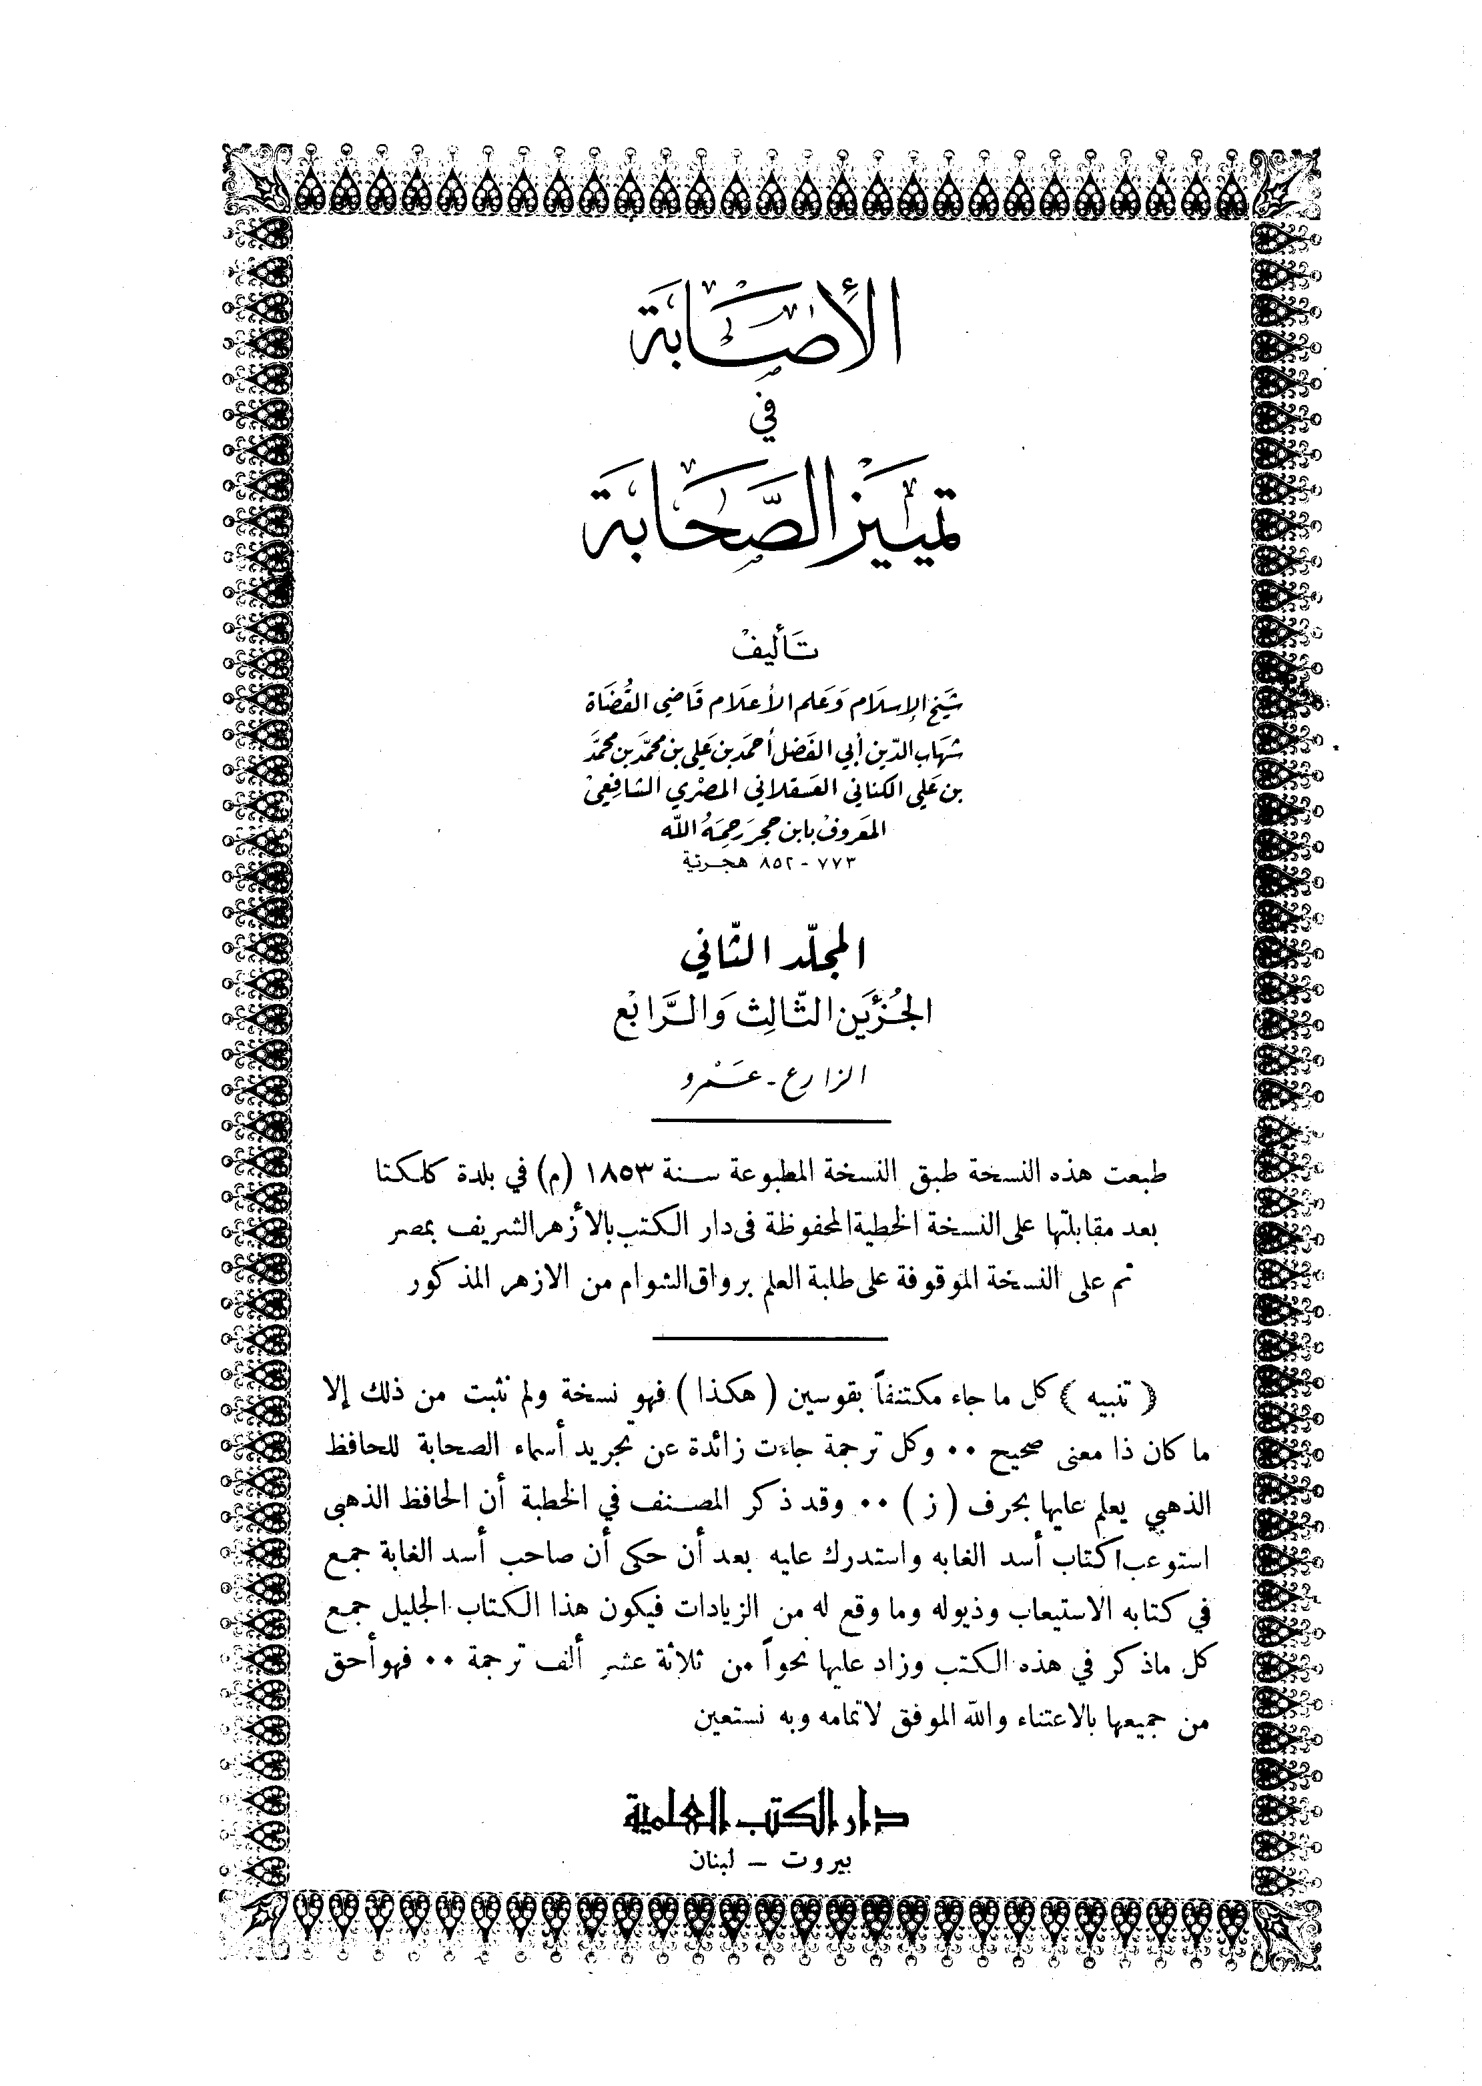 الإصَابَة
في
تمييز الصَّحَابَة
تَأليفْ
شَيخ الإسلَام وَعَلم الأعلَام قَاضي القُضَاة
شهَاب الدّين أبي الفَضل أحمد بن عَلي بن محمّد بن محمّد
بن عَلي الكناني العَسقلاني المصْري الشافِعيْ
المعَروفْ بابن حجر رَحِمَهُ اللّه
٧٧٣ - ٨٥٢ هجرية
المجلّد الثّاني
الجُزئين الثّالِث وَالرَّابْع
الزارع - عَمْرو
طبعت هذه النسخة طبق النسخة المطبوعة سنة ١٨٥٣ (م) في بلدة كلكتا
بعد مقابلتها على النسخة الخطية المحفوظة فى دار الكتب بالأزهر الشريف بمصر
ثم على النسخة الموقوفة على طلبة العلم برواق الشوام من الازهر المذكور
﴿ تنبيه ﴾ كل ما جاء مكتنفاً بقوسين ( هكذا ) فهو نسخة ولم نثبت من ذلك إلا
ما كان ذا معنى صحيح ٠٠ وكل ترجمة جاءت زائدة عن تجريد أسماء الصحابة للحافظ
الذهبي يعلم عليها بحرف ( ز ) ٠٠ وقد ذكر المصنف في الخطبة أن الحافظ الذهبى
استوعب كتاب أسد الغابه واستدرك عليه بعد أن حكى أن صاحب أسد الغابة جمع
في كتابه الاستيعاب وذيوله وما وقع له من الزيادات فيكون هذا الكتاب الجليل جمع
كل ماذكر في هذه الكتب وزاد عليها نحواً من ثلاثة عشر ألف ترجمة ٠٠ فهو أحق
من جميعها بالاعتناء والله الموفق لاتمامه وبه نستعين
دار الكتب العلمية
بيروت - لبنان